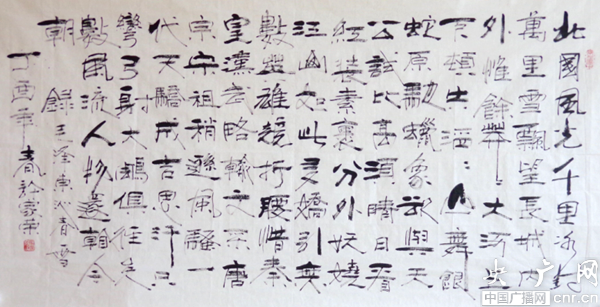 北國風光千里冰封
萬里雪飄望長城内
外惟餘莽〻大河上
下頓失滔〻山舞銀
蛇原馳蠟象欲與天
公試比高須晴日看
紅裝素裹分外妖嬈
江山如此多嬌引無
數英雄競折腰惜秦
皇漢武略輸文采唐
宗宋祖稍遜風騷一
代天驕成吉思汗只
彎弓射大鵰俱往矣
數風流人物還今
朝 錄毛澤東沁春雪
丁酉年春於家
央广网
中国广播网 cnr.cn